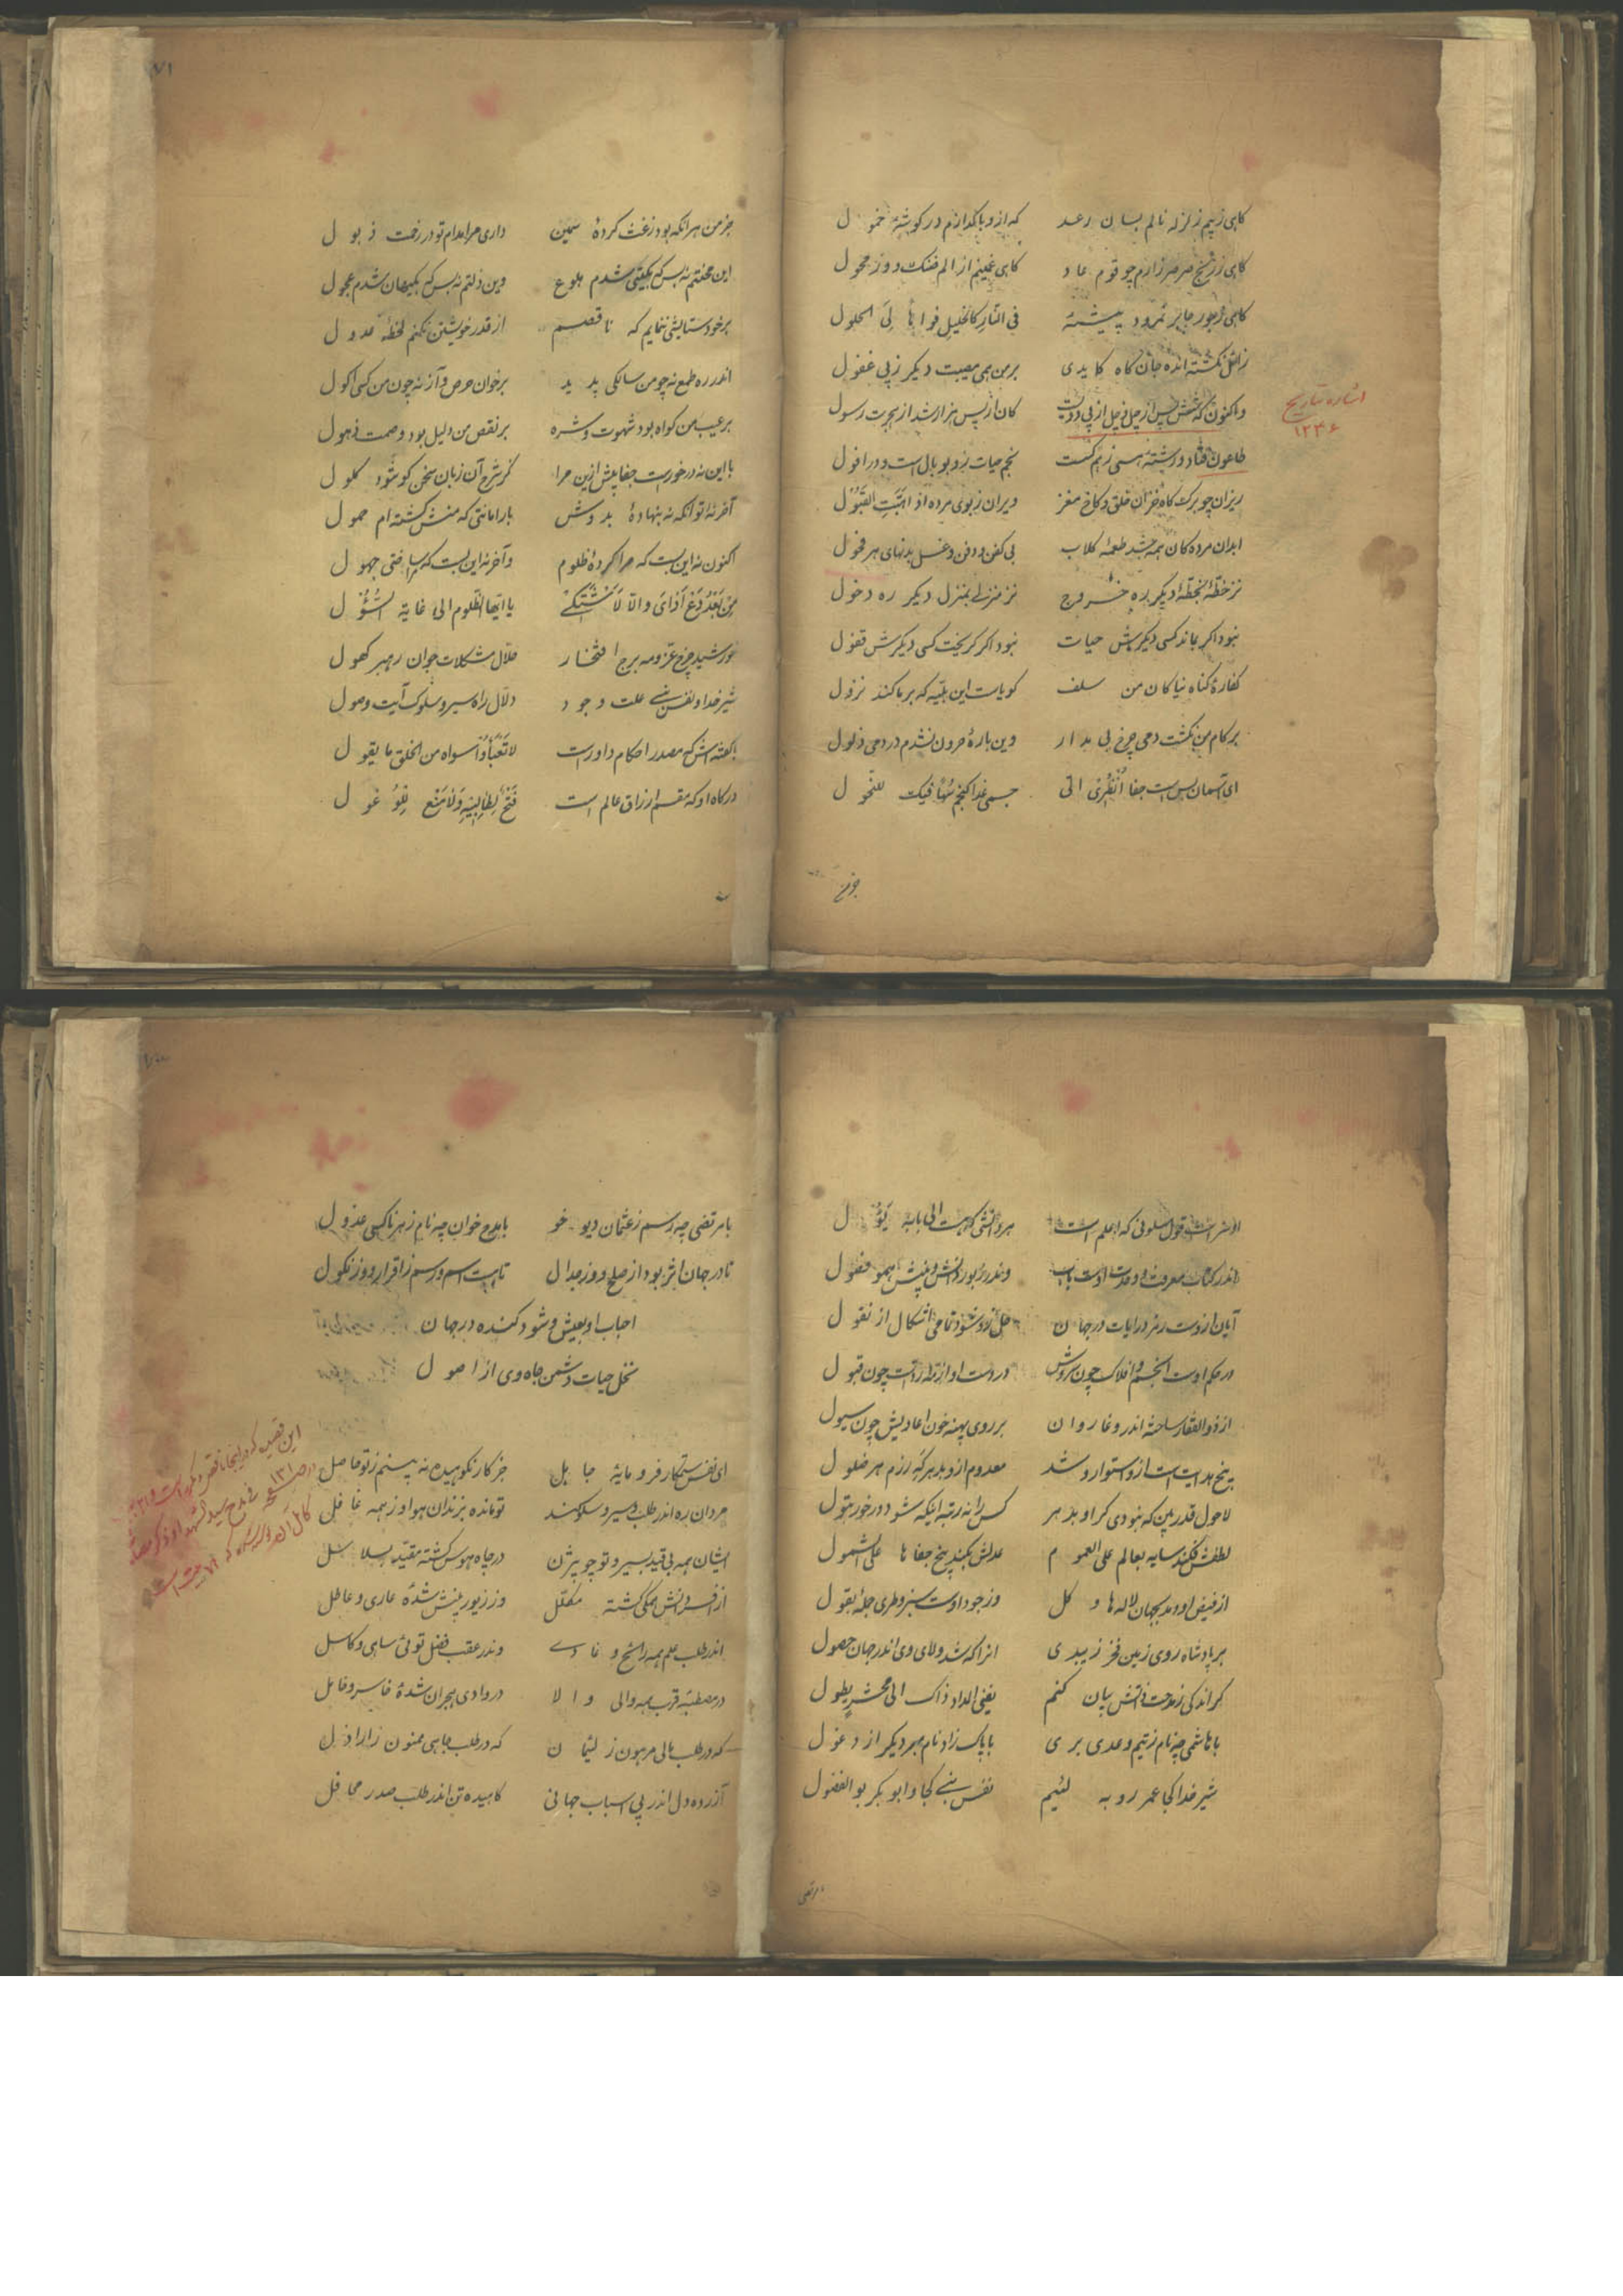 کاهی ز بیم زلزله نالم بسان رعد که از وبا گدازم در گوشهٔ خمول
کاهی ز رنج صرصر زارم چو قوم عاد کاهی غمینم از الم ضنک و وز محول
کاهی ز جور جابر نمرود پیشهٔ فی النار کالخلیل فواها لی الحلول
زائل نگشته انده جان کاه کایدی بر من همی مصیبت دیگر ز پی عفول
واکنون که شش پس از چل از پی دویت کان از پس هزار شد از هجرت رسول
اشاره بتاریخ
۱۲۴۶
طاعون فتاد و رشته هستی ز هم گست نجم حیات زو بوبال است و در افول
ریزان چو برک کاه خزان خلق و کاخ مغز ویران ز بوی مرده اذا انبتت القبول
ابدان مرده کان همه شد طعمه کلاب بی کفن و دفن و غسل بدنهای هر فحول
نز خطهٔ بخطهٔ دیگر ره خروج نز منزلی بمنزل دیگر ره دخول
نبود اگر بماند کسی دیگرش حیات نبود اگر گریخت کسی دیگرش قفول
کفارهٔ کناه نیاکان من سلف کویاست این بلیه که بر ما کند نزول
بر کام من نگشت دمی چرخ بی مدار وین بارهٔ حرون نشدم در دمی ذلول
ای آسمان بس است جفا انظری الی جسمی غدا کنجم سها فیک للنحول
جز من
۷۱
جز من هر انکه بود ز غث کردهٔ سمین داری مرا مدام تو در زخت ذبول
این محنتم نه بس که بگیتی شدم هلوع وین ذلتم نه بس که بگیهان شدم عجول
بر خود ستایشی ننمایم که ناقصم از قدر خویشتن نکنم لحظهٔ عدول
اندر ره طمع نه چو من سالکی پدید بر خوان حرص و آز نه چون من کسی اکول
بر عیب من کواه بود شهوت و شره بر نقص من دلیل بود وصمت ذهول
با این نه در خور است جفا بیش ازین مرا کز شرح آن زبان سخن کو شود کلول
آخر نهٔ تو انکه نه بنهادهٔ بدوش بار امانتی که منش کشته ام حمول
اکنون نه این بست که مرا کردهٔ ظلوم و آخر نه این بست که مرا ساختی جهول
من بعد دع اذای والا لاشتکی یا ایها الظلوم الی غایة السؤل
خورشید چرخ عز و مه برج افتخار حلال مشکلات جوان رهبر کهول
شیر خدا و نفس نبی علت وجود دلال راه سیر و سلوک آیت وصول
با گفته اش که مصدر احکام داور است لا تعباوا سواه من الخلق ما یقول
درگاه او که مقسم ارزاق عالم است فتح لطالبیه ولا منع للوغول
او سر است قول سلونی که اعلم است هر دانشی که هست الی بابه یؤل
اندر کتاب معرفت او حدیث اوست باب وندر زبور دانش و بینش همو فصول
آیان ازوست رمز درایات در جهان حل زو شود تمامی اشکال از نقول
در حکم اوست انجم و افلاک چون سروش در دست او ازمهٔ رد است چون قبول
از ذوالفقار ساخته اندر وغا روان بر روی پهنه خون اعادیش چون سیول
پنج هدایت است ازو استوار و شد معدوم ازو بدهر که رزم هر ضلول
لا حول قدر بین که نبودی گر او بدهر کس را نه رتبه اینکه شود در خور بتول
لطفش فکند سایه بعالم علی العموم عدلش بکند بیخ جفا ها علی الشمول
از فیض او دمد بجهان لاله ها و کل وز جود اوست سبز و طری جمله بقول
بر پادشاه روی زمین فخر زیبدی انرا که شد ولای وی اندر جهان حصول
گر اندکی ز مدحت ذاتش بیان کنم یفنی المداد ذاک الی محشر یطول
با هاشمی چه نام ز تیم و عدی بری با پاک زاد نام مبر دیگر از دغول
شیر خدا کجا عمر روبه لئیم نفس نبی کجا و ابو بکر بو الفضول
با مرتضی
با مرتضی چه رسم ز عثمان دیو خو با مدح خوان چه نام ز هر ناکسی عذول
تا در جهان اثر بود از صلح و وز جدال تا هست اسم و رسم ز اقرار و وز نکول
احباب او بعیش و شود کنده در جهان
نخل حیات دشمن جاه وی از اصول
ای نفس ستمکار فرومایهٔ جاهل جز کار نکوهیده نه بینم ز تو حاصل
مردان ره اندر طلب و سیر و سلوکند تو مانده بزندان هوا وز همه غافل
ایشان همه بی قید بسیر و تو چو بیژن در چاه هوس گشته مقید بسلاسل
از افسر دانش همگی گشته مکلل وز زیور بینش شدهٔ عاری و عاطل
اندر طلب علم همه راسخ و غادی وندر عقب فضل توئی ساهی و کاسل
در مصطبهٔ قرب همه والی و الا در وادی هجران شدهٔ خاسر و خامل
که در طلب مالی مرهون ز لئیمان که در طلب جاهی ممنون ز اراذل
آزرده دل اندر پی اسباب جهانی کاهیده تن اندر طلب صدر محافل
این قصیده که در اینجا ناقص